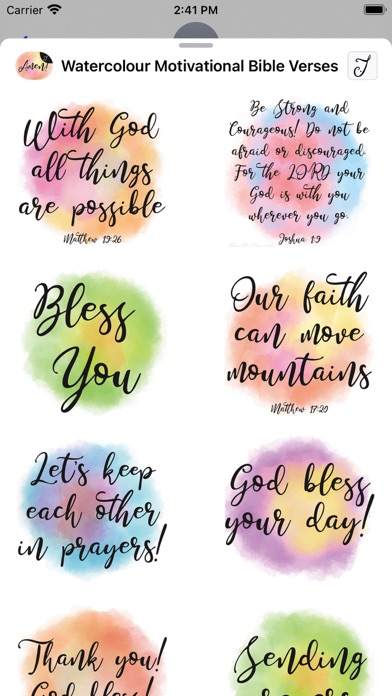 Carrier 2:41 PM
Amen!
Watercolour Motivational Bible Verses
With God
all things
are possible
Matthew 19:26
Be Strong and
Courageous! Do not be
afraid or discouraged.
For the LORD your
God is with you
wherever you go.
Joshua 1:9
Bless
You
Our faith
can move
mountains
Matthew 17:20
Let's keep
each other
in prayers!
God bless
your day!
Thank you!
God bless!
Sending